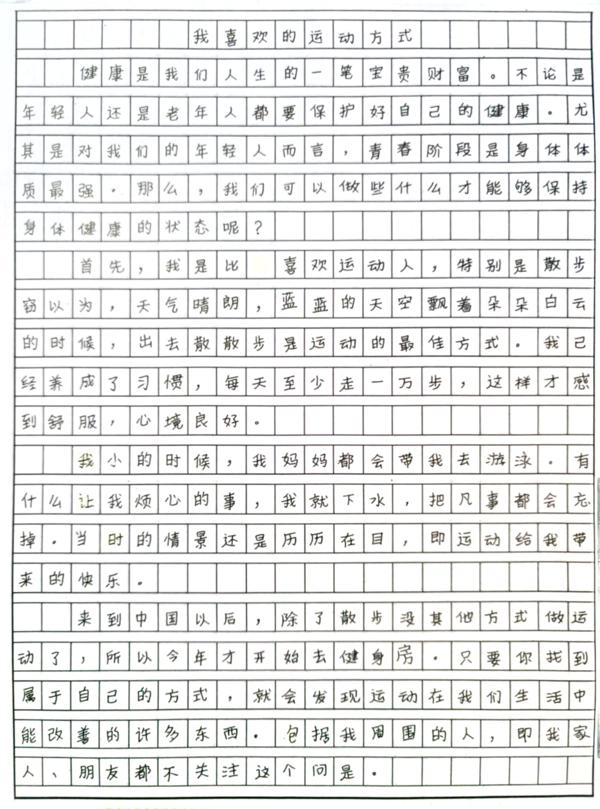 我喜欢的运动方式
健康是我们人生的一笔宝贵财富。不论是
年轻人还是老年人都要保护好自己的健康。尤
其是对我们的年轻人而言，青春阶段是身体体
质最强。那么，我们可以做些什么才能够保持
身体健康的状态呢？
首先，我是比 喜欢运动人，特别是散步
窃以为，天气晴朗，蓝蓝的天空飘着朵朵白云
的时候，出去散散步是运动的最佳方式。我已
经养成了习惯，每天至少走一万步，这样才感
到舒服，心境良好。
我小的时候，我妈妈都会带我去游泳。有
什么让我烦心的事，我就下水，把凡事都会忘
掉。当时的情景还是历历在目，即运动给我带
来的快乐。
来到中国以后，除了散步没其他方式做运
动了，所以今年才开始去健身房。只要你找到
属于自己的方式，就会发现运动在我们生活中
能改善的许多东西。包据我周围的人，即我家
人、朋友都不关注这个问是。